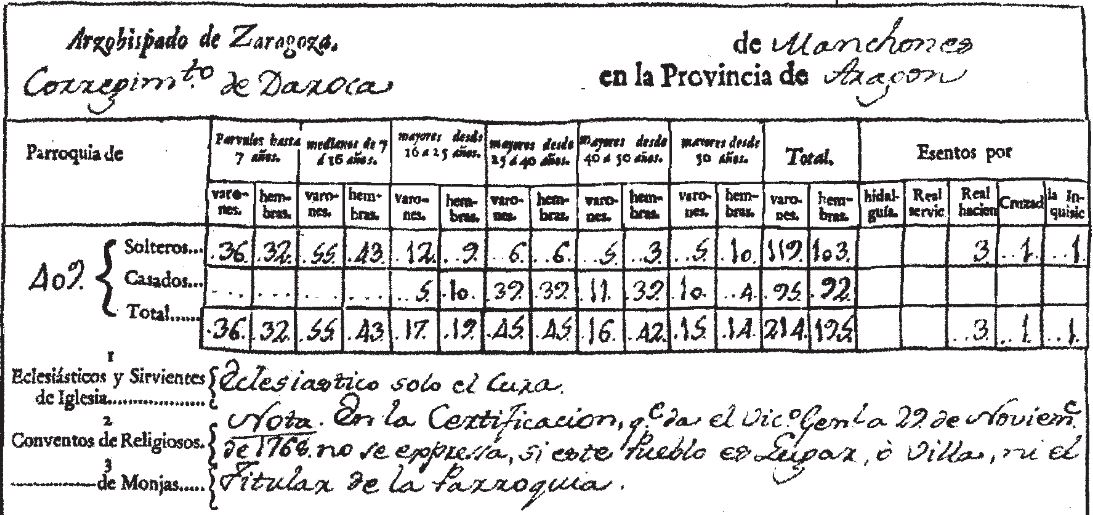 Arzobispado de Zaragoza.
de Manchones
Corregim.to de Daroca
en la Provincia de Aragon
Parroquia de
Parvulos hasta 7 años. medianos de 7 á 16 años. mayores desde 16 a 25 años. mayores desde 25 a 40 años. mayores desde 40 a 50 años. mayores desde 50 años. Total. Esentos por
varones. hembras. varones. hembras. varones. hembras. varones. hembras. varones. hembras. varones. hembras. varones. hembras. hidalguía. Real servic Real hacien Cruzad la Inquisic
409. { Solteros... 36. 32. 55. 43. 12. 9. 6. 6. 5. 3. 5. 10. 119. 103. 3. 1. 1.
Casados... 5. 10. 39. 39. 11. 39. 10. 4. 95. 92.
Total...... 36. 32. 55. 43. 17. 19. 45. 45. 16. 42. 15. 14. 214. 195. 3. 1. 1.
1
Eclesiásticos y Sirvientes de Iglesia................... { Eclesiastico solo el Cura.
2
Conventos de Religiosos. { Nota. En la Certificacion, q.e da el Vic.o Genl a 29 de Noviem.e
de 1768. no se expressa, si este Pueblo es Lugar, ò Villa, ni el
3
de Monjas..... { Titular de la Parroquia.